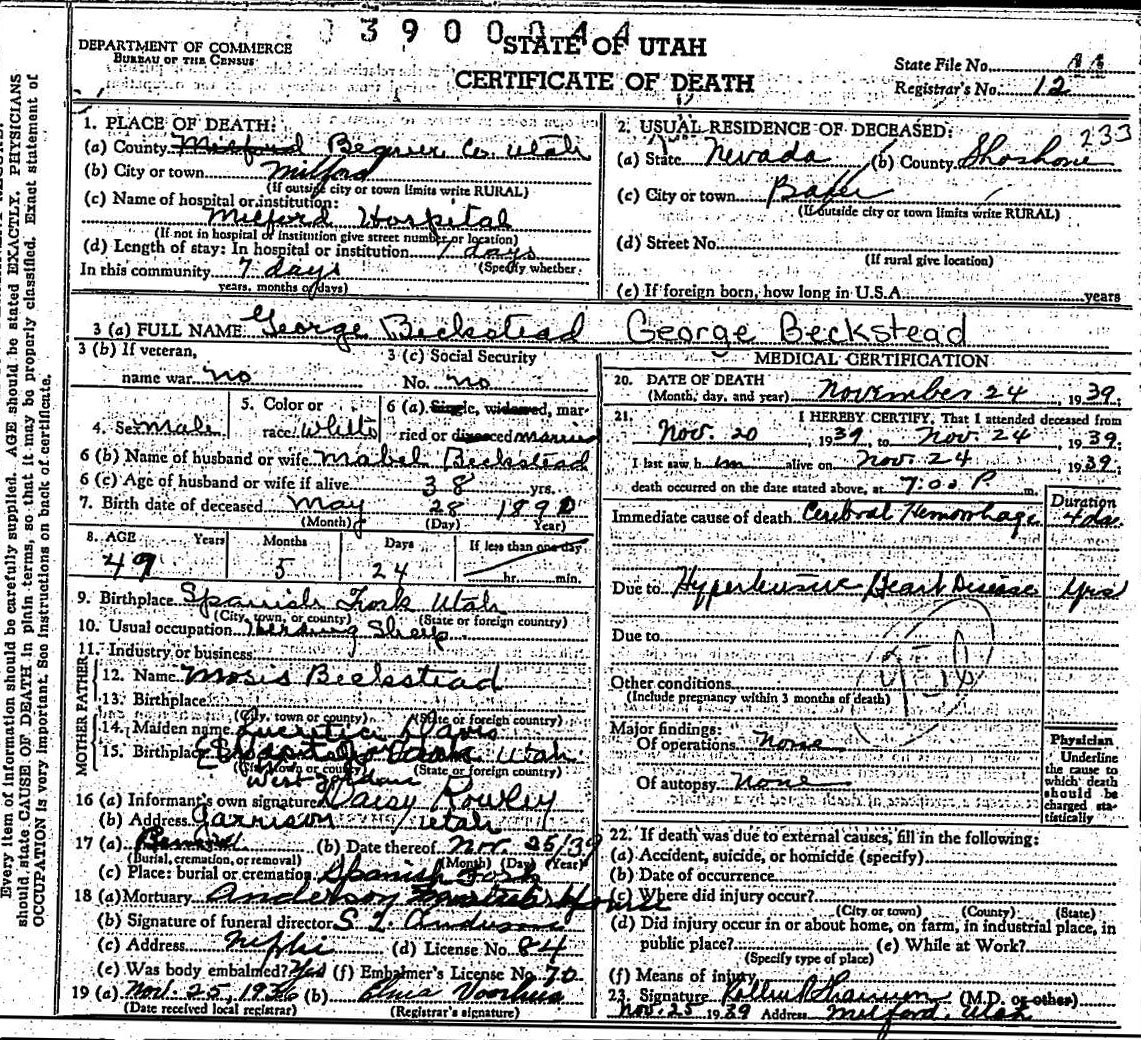 3 9 0 0 0 4 4
DEPARTMENT OF COMMERCE
BUREAU OF THE CENSUS
STATE OF UTAH
CERTIFICATE OF DEATH
State File No. 44
Registrar's No. 12
Every item of information should be carefully supplied. AGE should be stated EXACTLY. PHYSICIANS
should state CAUSE OF DEATH in plain terms, so that it may be properly classified. Exact statement of
OCCUPATION is very important. See instructions on back of certificate.
1. PLACE OF DEATH:
(a) County Milford Beaver Co. Utah
(b) City or town Milford
(If outside city or town limits write RURAL)
(c) Name of hospital or institution:
Milford Hospital
(If not in hospital or institution give street number or location)
(d) Length of stay: In hospital or institution 7 days
(Specify whether
In this community 7 days
years, months or days)
2. USUAL RESIDENCE OF DECEASED:
233
(a) State Nevada (b) County Shoshone
(c) City or town Baker
(If outside city or town limits write RURAL)
(d) Street No.
(If rural give location)
(e) If foreign born, how long in U.S.A. years
3 (a) FULL NAME George Beckstead George Beckstead
3 (b) If veteran,
name war no
3 (c) Social Security
No. no
4. Sex Male
5. Color or
race White
6 (a) Single, widowed, mar-
ried or divorced married
6 (b) Name of husband or wife Mabel Beckstead
6 (c) Age of husband or wife if alive 38 yrs.
7. Birth date of deceased May 28 1890
(Month) (Day) Year)
8. AGE Years Months Days If less than one day
49 5 24 hr. min.
9. Birthplace Spanish Fork Utah
(City, town, or county) (State or foreign country)
10. Usual occupation Herding Sheep
11. Industry or business
FATHER
12. Name Mosis Beckstead
13. Birthplace
(City, town or county) (State or foreign country)
MOTHER
14. Maiden name Lucretia Davis
15. Birthplace Utah
(City, town or county) (State or foreign country)
West Jordan
16 (a) Informant's own signature Daisy Rowley
(b) Address Garrison Utah
17 (a) (b) Date thereof Nov. 25/39
(Burial, cremation, or removal) (Month) (Day) (Year)
(c) Place: burial or cremation Spanish Fork
18 (a) Mortuary Anderson Home
(b) Signature of funeral director S. L. Anderson
(c) Address Nephi (d) License No. 84
(e) Was body embalmed? Yes (f) Embalmer's License No. 70
19 (a) Nov. 25, 1936 (b) Voorhees
(Date received local registrar) (Registrar's signature)
MEDICAL CERTIFICATION
20. DATE OF DEATH
(Month, day, and year) November 24, 1939.
21. I HEREBY CERTIFY, That I attended deceased from
Nov. 20, 1939, to Nov. 24 1939;
I last saw him alive on Nov. 24 1939;
death occurred on the date stated above, at 7:00 P m.
Duration
Immediate cause of death Cerebral Hemorrhage 4 da.
Due to Hypertensive Heart Disease yrs
Due to
Other conditions
(Include pregnancy within 3 months of death)
Major findings:
Of operations none
Of autopsy none
Physician
Underline
the cause to
which death
should be
charged sta-
tistically
22. If death was due to external causes, fill in the following:
(a) Accident, suicide, or homicide (specify)
(b) Date of occurrence
(c) Where did injury occur?
(City or town) (County) (State)
(d) Did injury occur in or about home, on farm, in industrial place, in
public place? (e) While at Work?
(Specify type of place)
(f) Means of injury
23. Signature (M.D. or other)
Nov. 25 1939 Address Milford, Utah